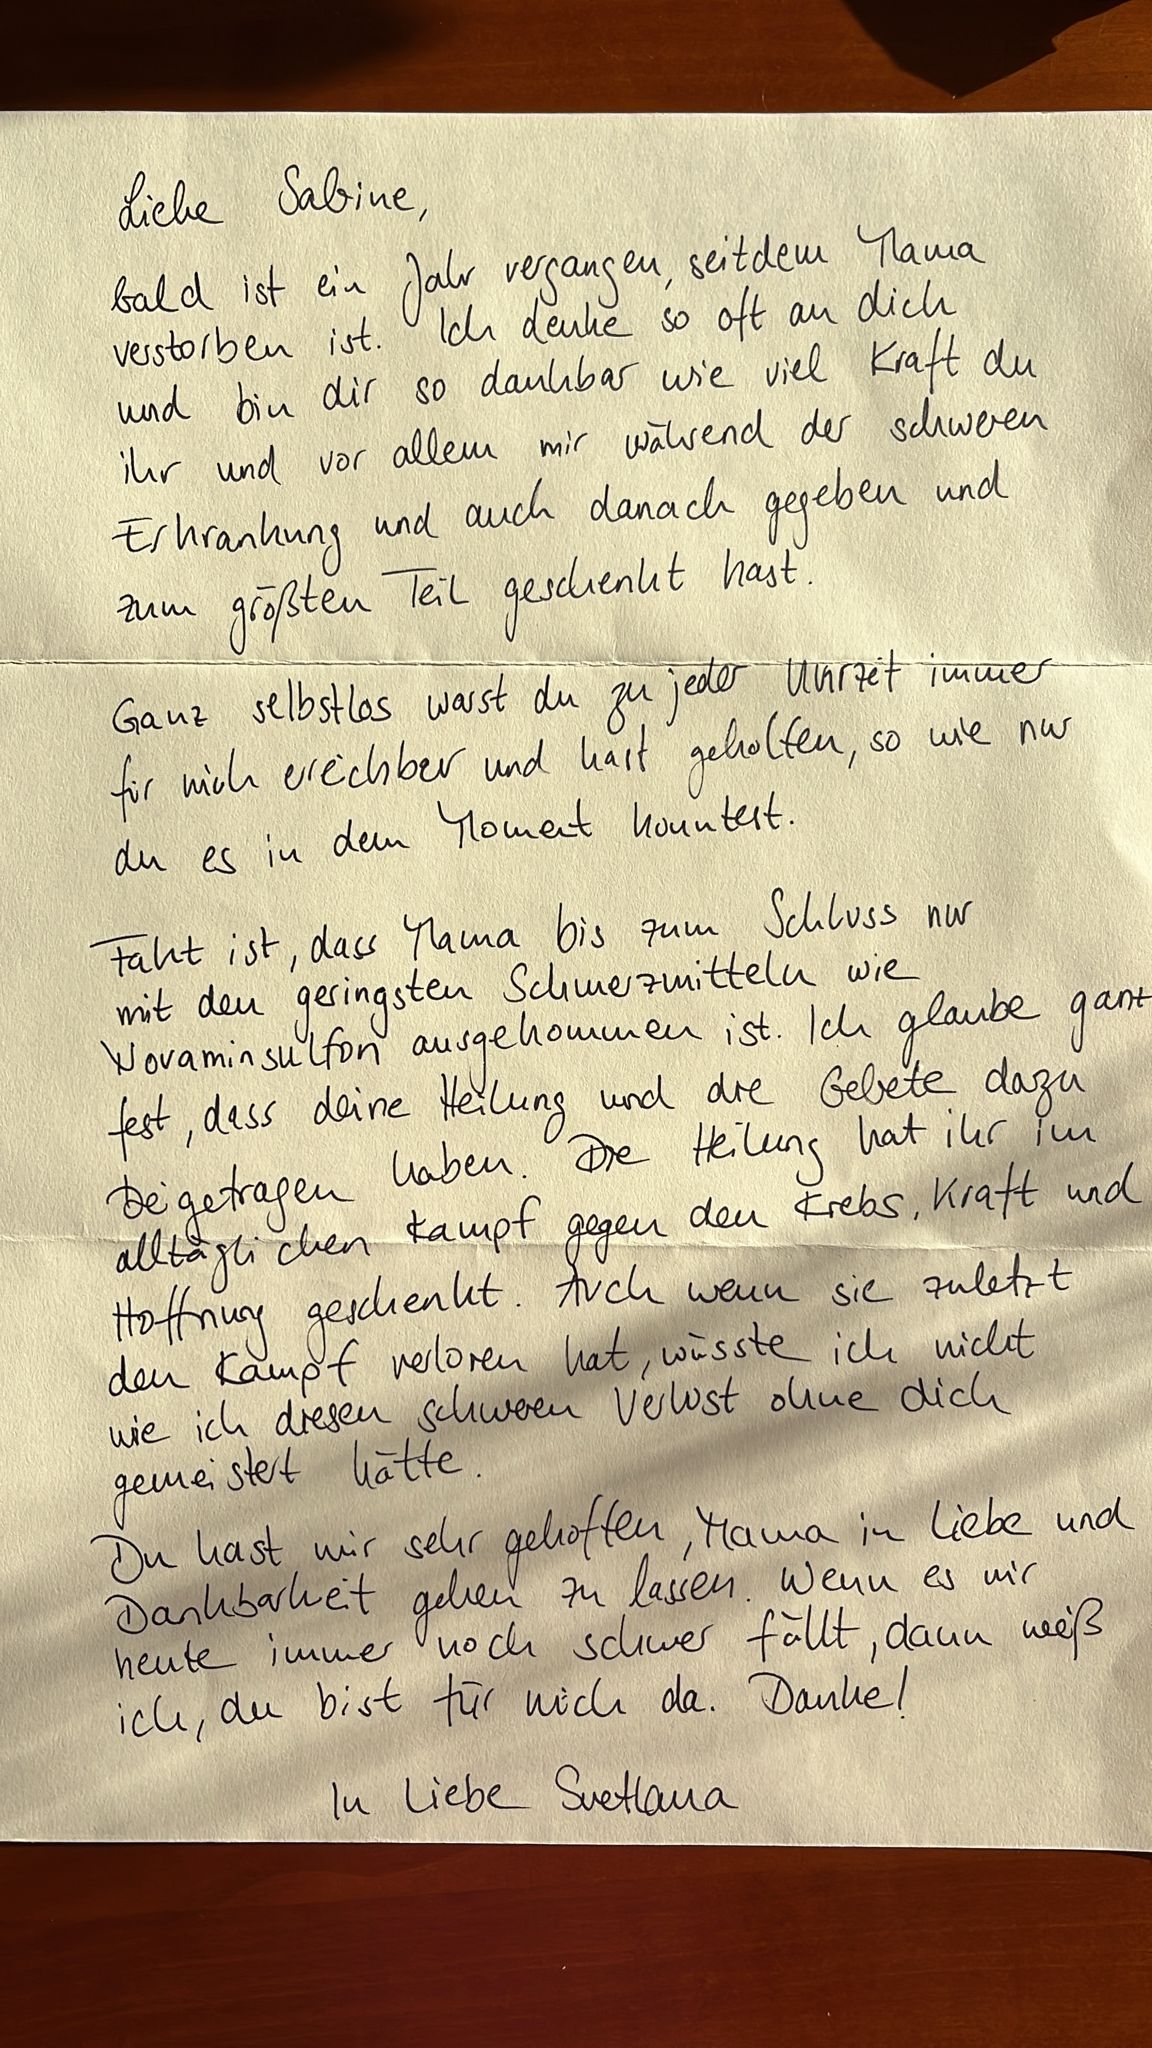 Liebe Sabine,
bald ist ein Jahr vergangen, seitdem Mama
verstorben ist. Ich denke so oft an dich
und bin dir so dankbar wie viel Kraft du
ihr und vor allem mir während der schweren
Erkrankung und auch danach gegeben und
zum größten Teil geschenkt hast.
Ganz selbstlos warst du zu jeder Uhrzeit immer
für mich erreichbar und hast geholfen, so wie nur
du es in dem Moment konntest.
Fakt ist, dass Mama bis zum Schluss nur
mit den geringsten Schmerzmitteln wie
Novaminsulfon ausgekommen ist. Ich glaube ganz
fest, dass deine Heilung und die Gebete dazu
beigetragen haben. Die Heilung hat ihr im
alltäglichen Kampf gegen den Krebs, Kraft und
Hoffnung geschenkt. Auch wenn sie zuletzt
den Kampf verloren hat, wüsste ich nicht
wie ich diesen schweren Verlust ohne dich
gemeistert hätte.
Du hast mir sehr geholfen, Mama in Liebe und
Dankbarkeit gehen zu lassen. Wenn es mir
heute immer noch schwer fällt, dann weiß
ich, du bist für mich da. Danke!
In Liebe Svetlana